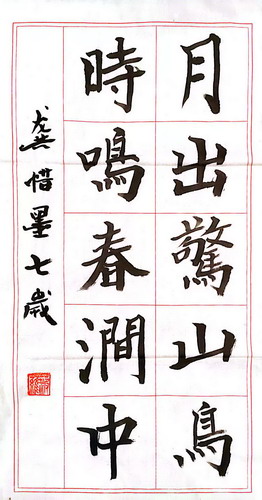 月出驚山鳥
時鳴春澗中
龚惜墨七歲